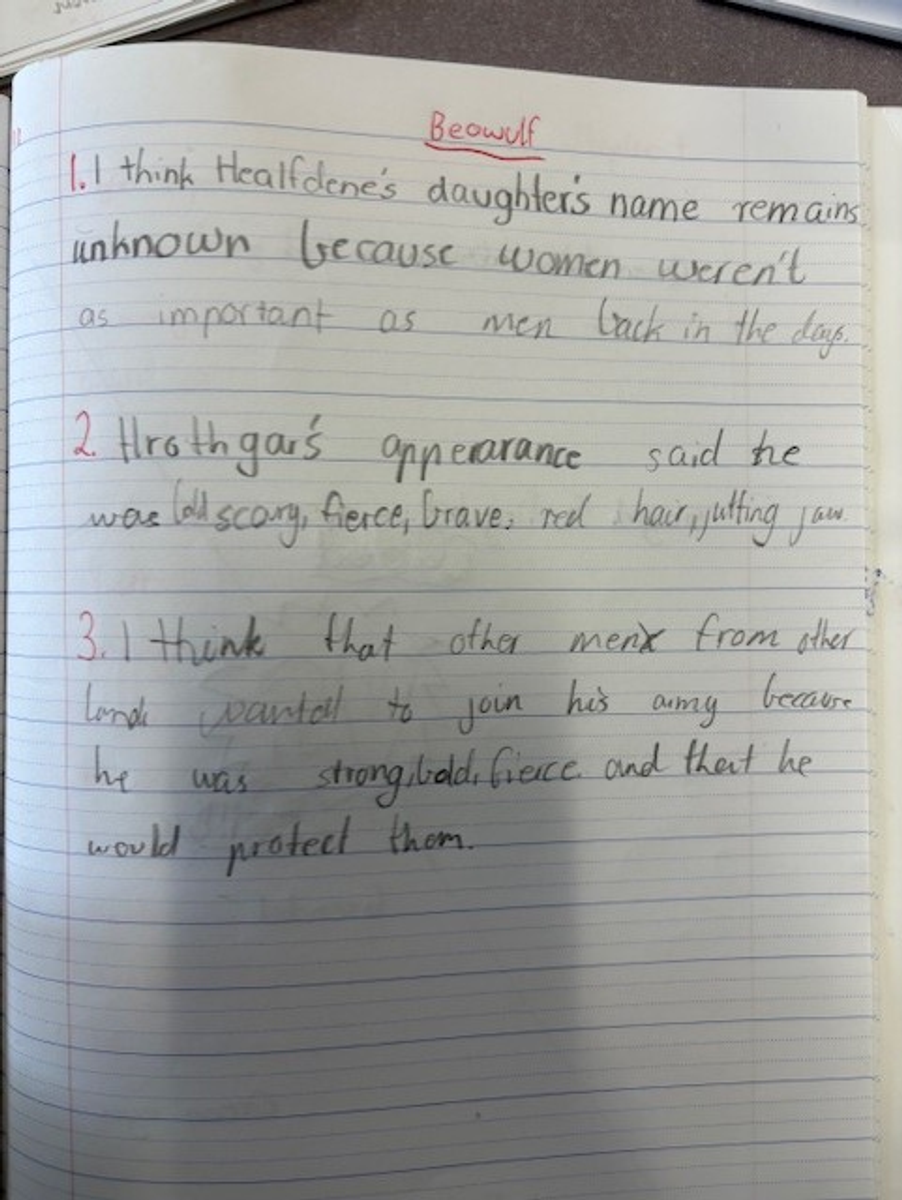 Beowulf
1. I think Healfdene's daughter's name remains
unknown because women weren't
as important as men back in the days.
2. Hrothgar's apperarance said he
was bold scary, fierce, brave, red hair, jutting jaw.
3. I think that other men from other
lands wanted to join his army because
he was strong, bold, fierce and that he
would protect them.